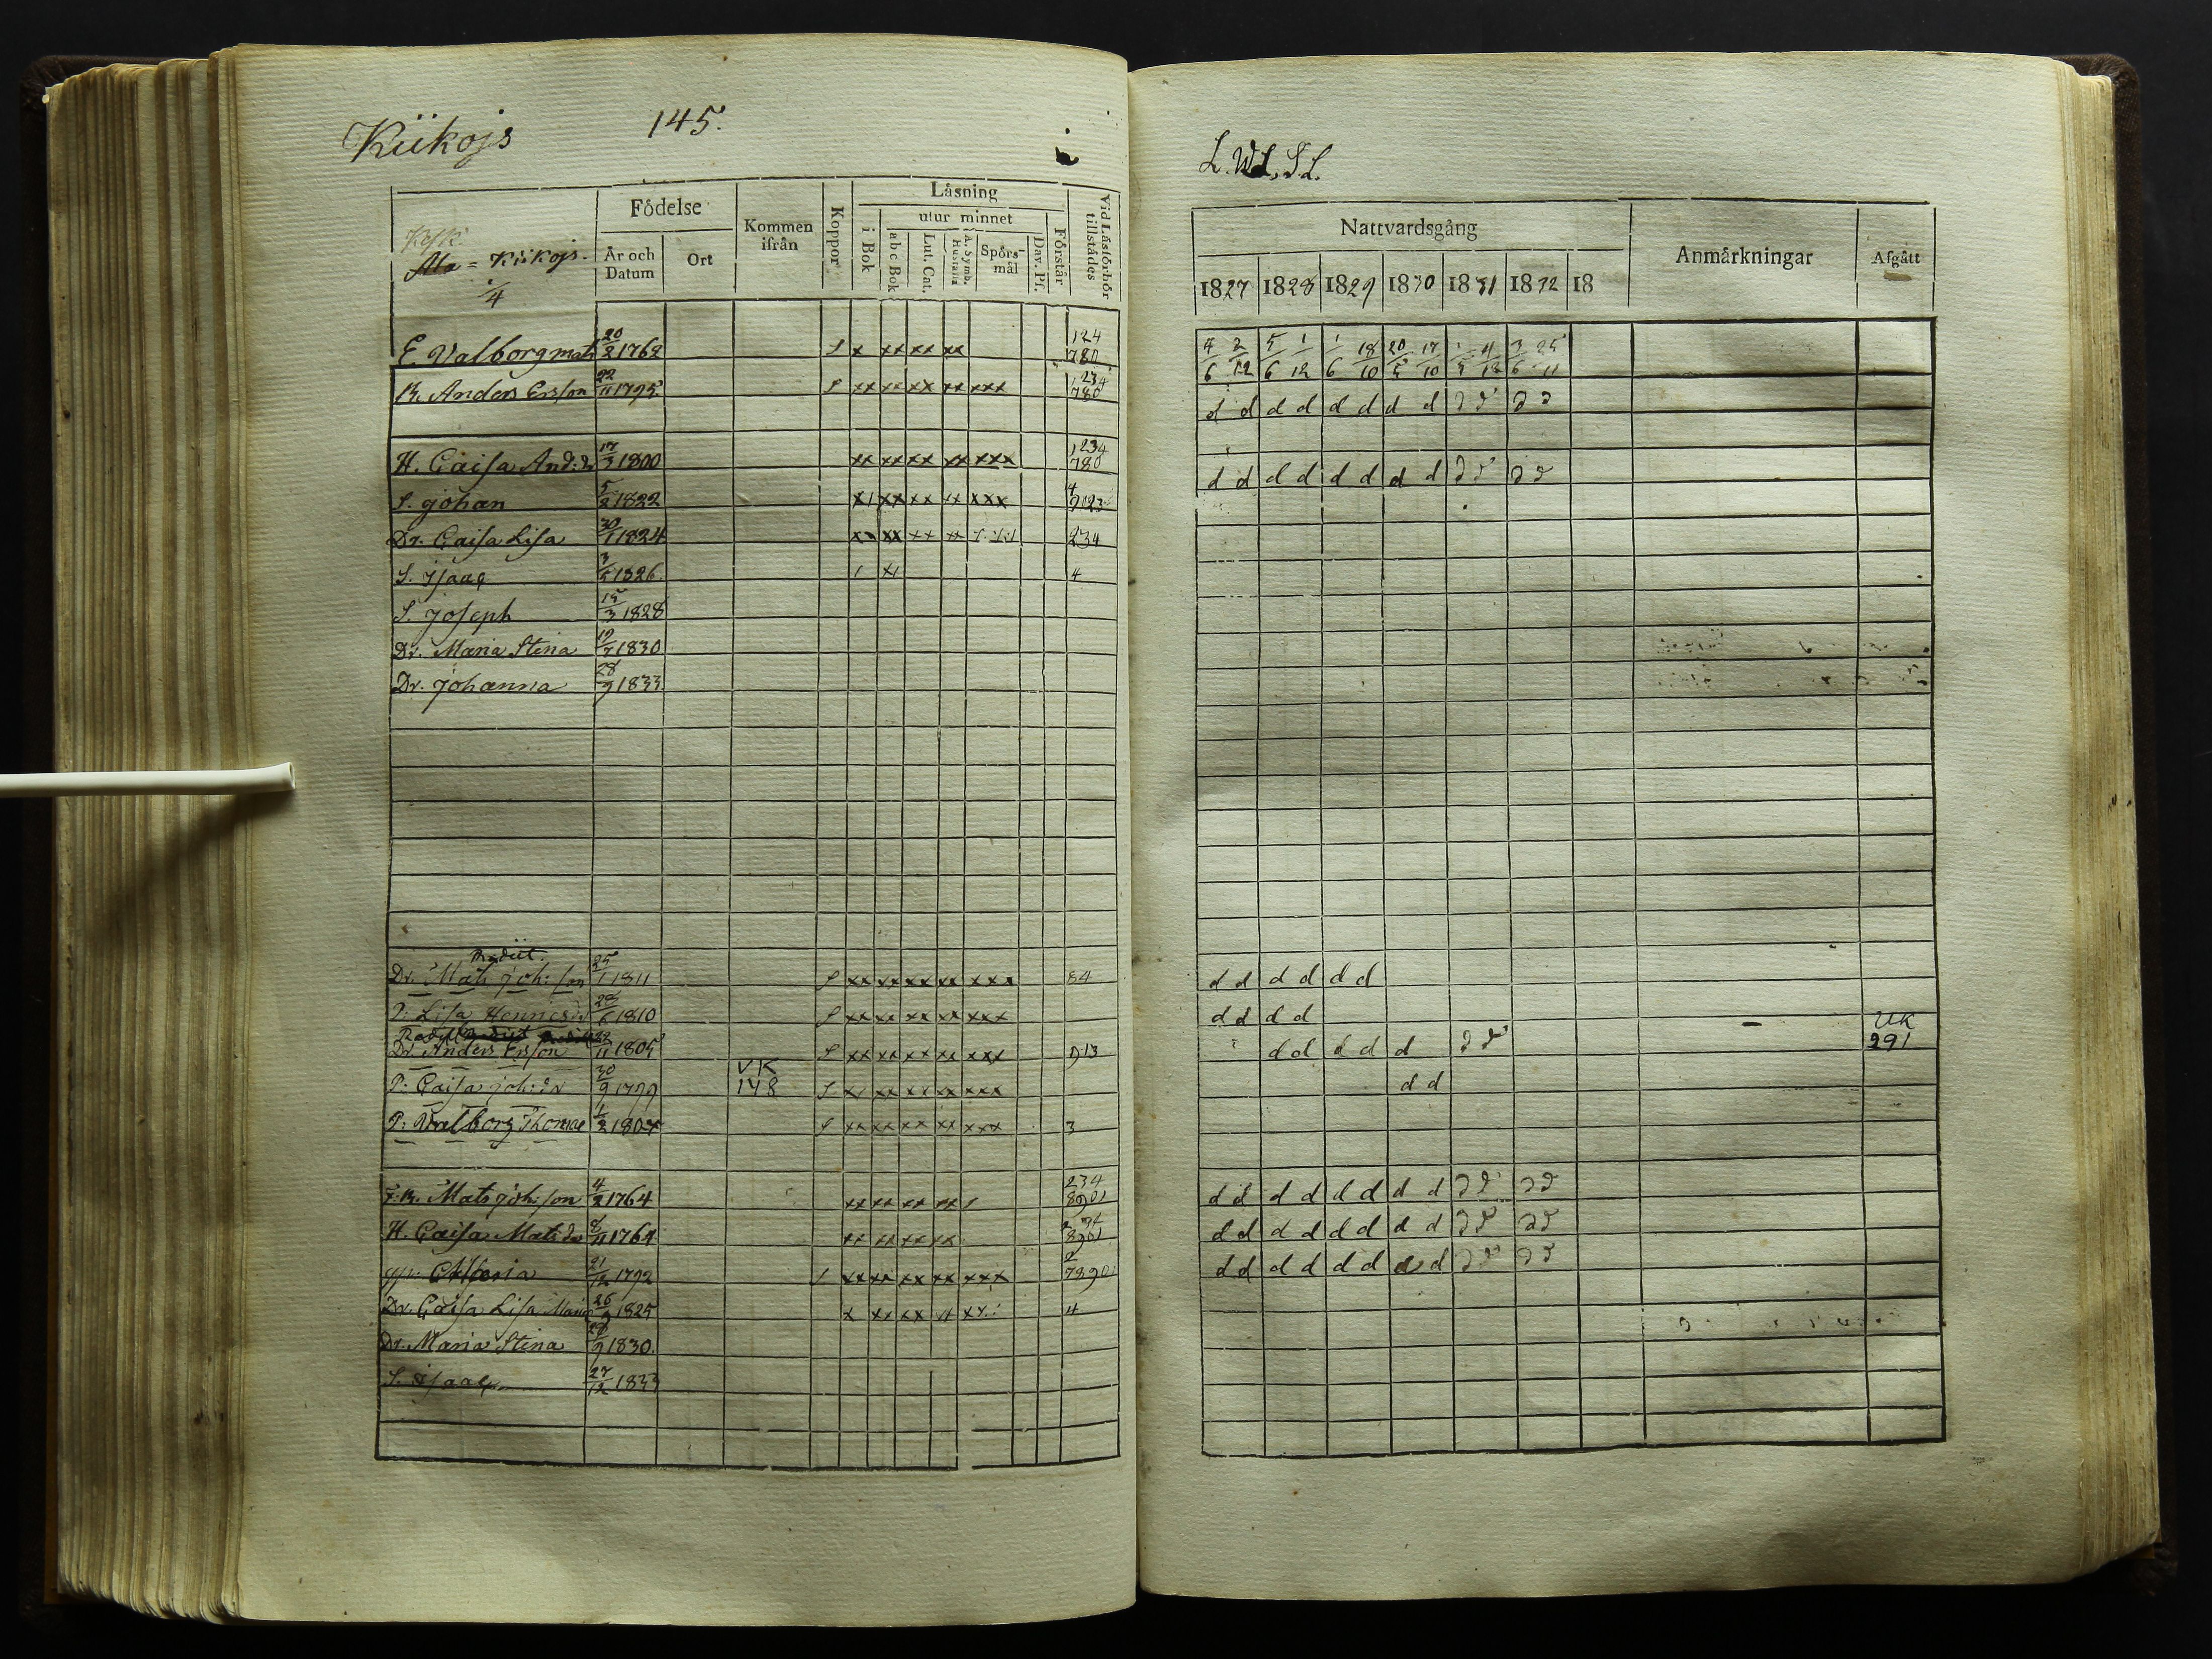 Kiikojs 145.
L. Wl. S.L.
Födelse
Kommen ifrån
Koppor
Läsning
utur minnet
i Bok
abc Bok
Lut. Cat.
A. Symb. Hustafla
Spörsmål
Dav. Ps.
Förstår
Vid Läsförhör tillstädes
År och Datum
Ort
Kesk.
= Kiikojs.
1/4
Nattvardsgång
Anmärkningar
Afgått
1827 1828 1829 1830 1831 1832 18
E. Valborg mats 20/2 1762 S x xx xx xx 124 780
4/6 2/12 5/6 1/12 1/6 18/10 20/5 17/10 4/12 3/6 25/11
B. Anders Ersson 22/11 1795. S xx xx xx xx xxx 1234 780
d d d d d d d d d d d d
H. Caisa And:dr 17/3 1800 xx xx xx xx xxx 1234 780
d d d d d d d d d d d d
S. Johan 5/2 1822 x1 xx xx xx xxx 4 9123
Dr. Caisa Lisa 30/1 1824 xx xx xx xx 234
S. Isaac 3/5 1826. 1 x1 4
S. Joseph 15/3 1828
Dr. Maria Stina 19/7 1830
Dr. Johanna 28/9 1833.
Rediit.
Dr. Mats Joh:son 25/1 1811 S xx xx xx xx xxx 84
d d d d d d
P: Lisa Hennesdr 28/6 1810 S xx xx xx xx xxx
d d d d
Dr. Anders Ersson 22/11 1805 S xx xx xx xx xxx 913
d d d d d d d
UK 291
P: Caisa Joh:dr 30/9 1799 VK 148 S x1 xx xx xx xxx
d d
P: Valborg Thomae 1/2 1804 S xx xx xx xx xxx 3
F.B. Mats Joh:son 4/2 1764 xx xx xx xx 1 234 8901
d d d d d d d d d d d d
H. Caisa Matsdr 8/11 1764 xx xx xx xx 234 8901
d d d d d d d d d d d d
Maria 21/12 1792 S xx xx xx xx xxx 2 78901
d d d d d d d d d d d d
Dr. Caisa Lisa Maria 26/9 1825 x xx xx x 4
Dr. Maria Stina 28/9 1830.
S. Isaac 27/12 1833